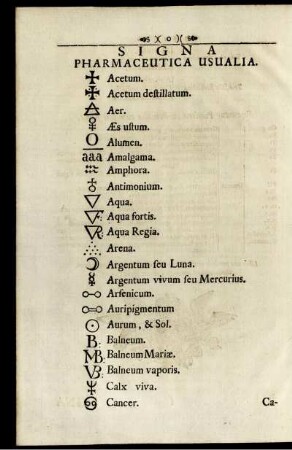 S )( o )( S
SIGNA
PHARMACEUTICA USUALIA.
Acetum.
Acetum deſtillatum.
Aer.
Æs uſtum.
O Alumen.
aaa Amalgama.
Amphora.
Antimonium.
▽ Aqua.
Aqua fortis.
Aqua Regia.
Arena.
☽ Argentum ſeu Luna.
☿ Argentum vivum ſeu Mercurius.
o-o Arſenicum.
o=o Auripigmentum
☉ Aurum, & Sol.
B: Balneum.
MB: Balneum Mariæ.
VB: Balneum vaporis.
Calx viva.
♋ Cancer. Ca-